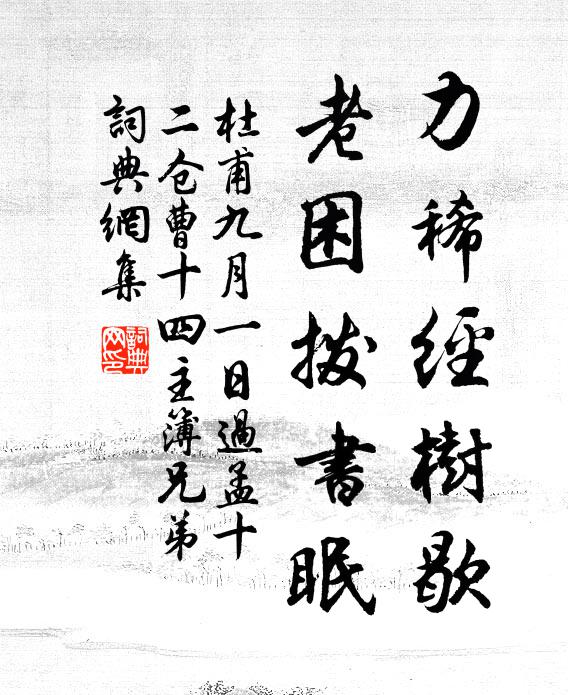 力稀經樹歇
老困拨書眠
杜甫九月一日過孟十
二仓曹十四主簿兄弟
詞典網集
詞典
网印